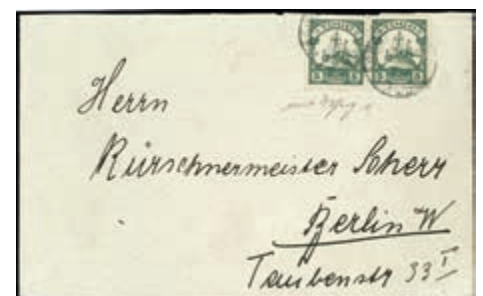 5 5
Herrn
Kürschnermeister Scherr
Berlin W
Taubenstr 33 I